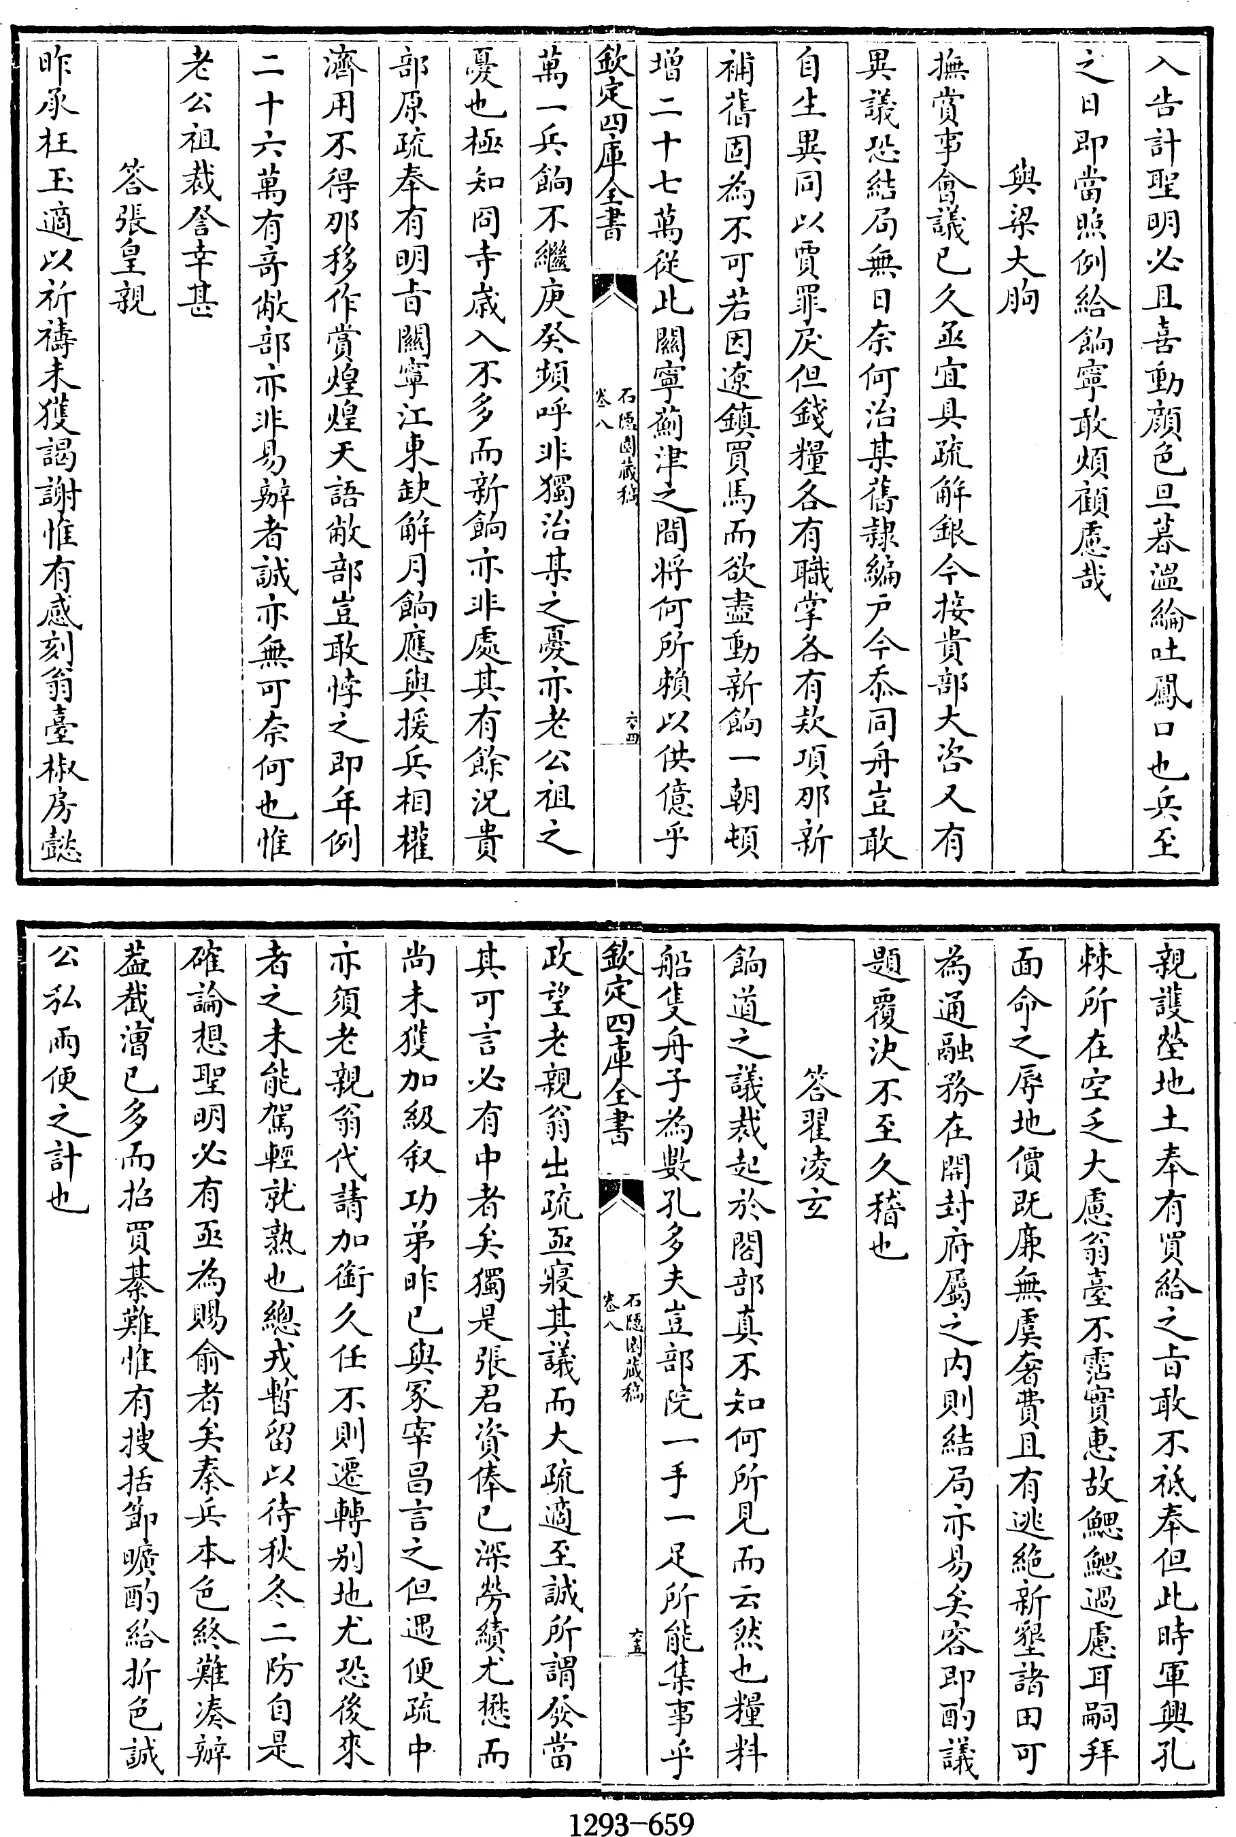 入告計聖明必且喜動顔色旦暮溫綸吐鳳口也兵至
之日即當照例給餉寧敢煩顧慮哉
與梁大朐
撫賞事會議已久亟宜具疏解銀今接貴部大咨又有
異議恐結局無日奈何治某舊隸編戶今忝同舟豈敢
自生異同以賈罪戾但錢糧各有職掌各有款項那新
補舊固為不可若因遼鎮買馬而欲盡動新餉一朝頓
增二十七萬從此關寧薊津之間將何所賴以供億乎
欽定四庫全書
石隱園藏稿
卷八
六四
萬一兵餉不繼庚癸頻呼非獨治某之憂亦老公祖之
憂也極知冏寺歲入不多而新餉亦非處其有餘況貴
部原疏奉有明旨關寧江東缺解月餉應與援兵相權
濟用不得那移作賞煌煌天語敝部豈敢悖之即年例
二十六萬有奇敝部亦非易辦者誠亦無可奈何也惟
老公祖裁詧幸甚
答張皇親
昨承枉玉適以祈禱未獲謁謝惟有感刻翁臺椒房懿
親護塋地土奉有買給之旨敢不祗奉但此時軍興孔
棘所在空乏大慮翁臺不霑實惠故鰓鰓過慮耳嗣拜
面命之辱地價既廉無虞奢費且有逃絶新墾諸田可
為通融務在開封府屬之内則結局亦易矣容即酌議
題覆決不至久稽也
答翟凌玄
餉道之議裁起於閣部真不知何所見而云然也糧料
船隻舟子為數孔多夫豈部院一手一足所能集事乎
欽定四庫全書
石隱園藏稿
卷八
六五
政望老親翁出疏亟寢其議而大疏適至誠所謂發當
其可言必有中者矣獨是張君資俸已深勞績尤懋而
尚未獲加級叙功弟昨已與冢宰昌言之但遇便疏中
亦須老親翁代請加銜久任不則遷轉别地尤恐後來
者之未能駕輕就熟也總戎暫留以待秋冬二防自是
確論想聖明必有亟為賜俞者矣秦兵本色終難湊辦
葢截漕已多而招買綦難惟有搜括節曠酌給折色誠
公私兩便之計也
1293-659